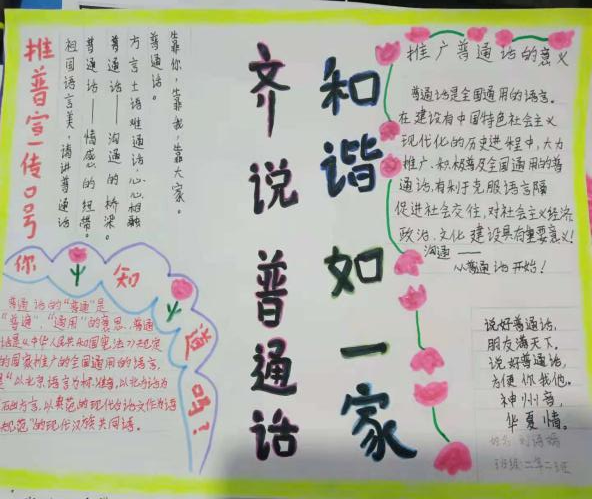 推普宣传口号
祖国语言美,请讲普通话
普通话——情感的纽带。
普通话——沟通的桥梁。
方言土语难通话,心心相融
普通话。
靠你,靠我,靠大家。
齐说普通话
和谐如一家
推广普通话的意义
普通话是全国通用的语言。
在建设有中国特色社会主义
现代化的历史进程中,大力
推广、积极普及全国通用的普
通话,有利于克服语言隔
促进社会交往,对社会主义经济
政治、文化建设具有重要意义!
沟通——
从普通话开始!
你知道吗?
普通话的“普通”是
“普遍”、“通用”的意思。普通
话是《中华人民共和国宪法》规定
的国家推广的全国通用的语言,
是“以北京语言为标准音,以北方话为
方言,以典范的现代白话文作为语
规范”的现代汉族共同语。
说好普通话,
朋友满天下。
说好普通话,
方便你我他。
神州音,
华夏情。
姓名
班级:二年二班